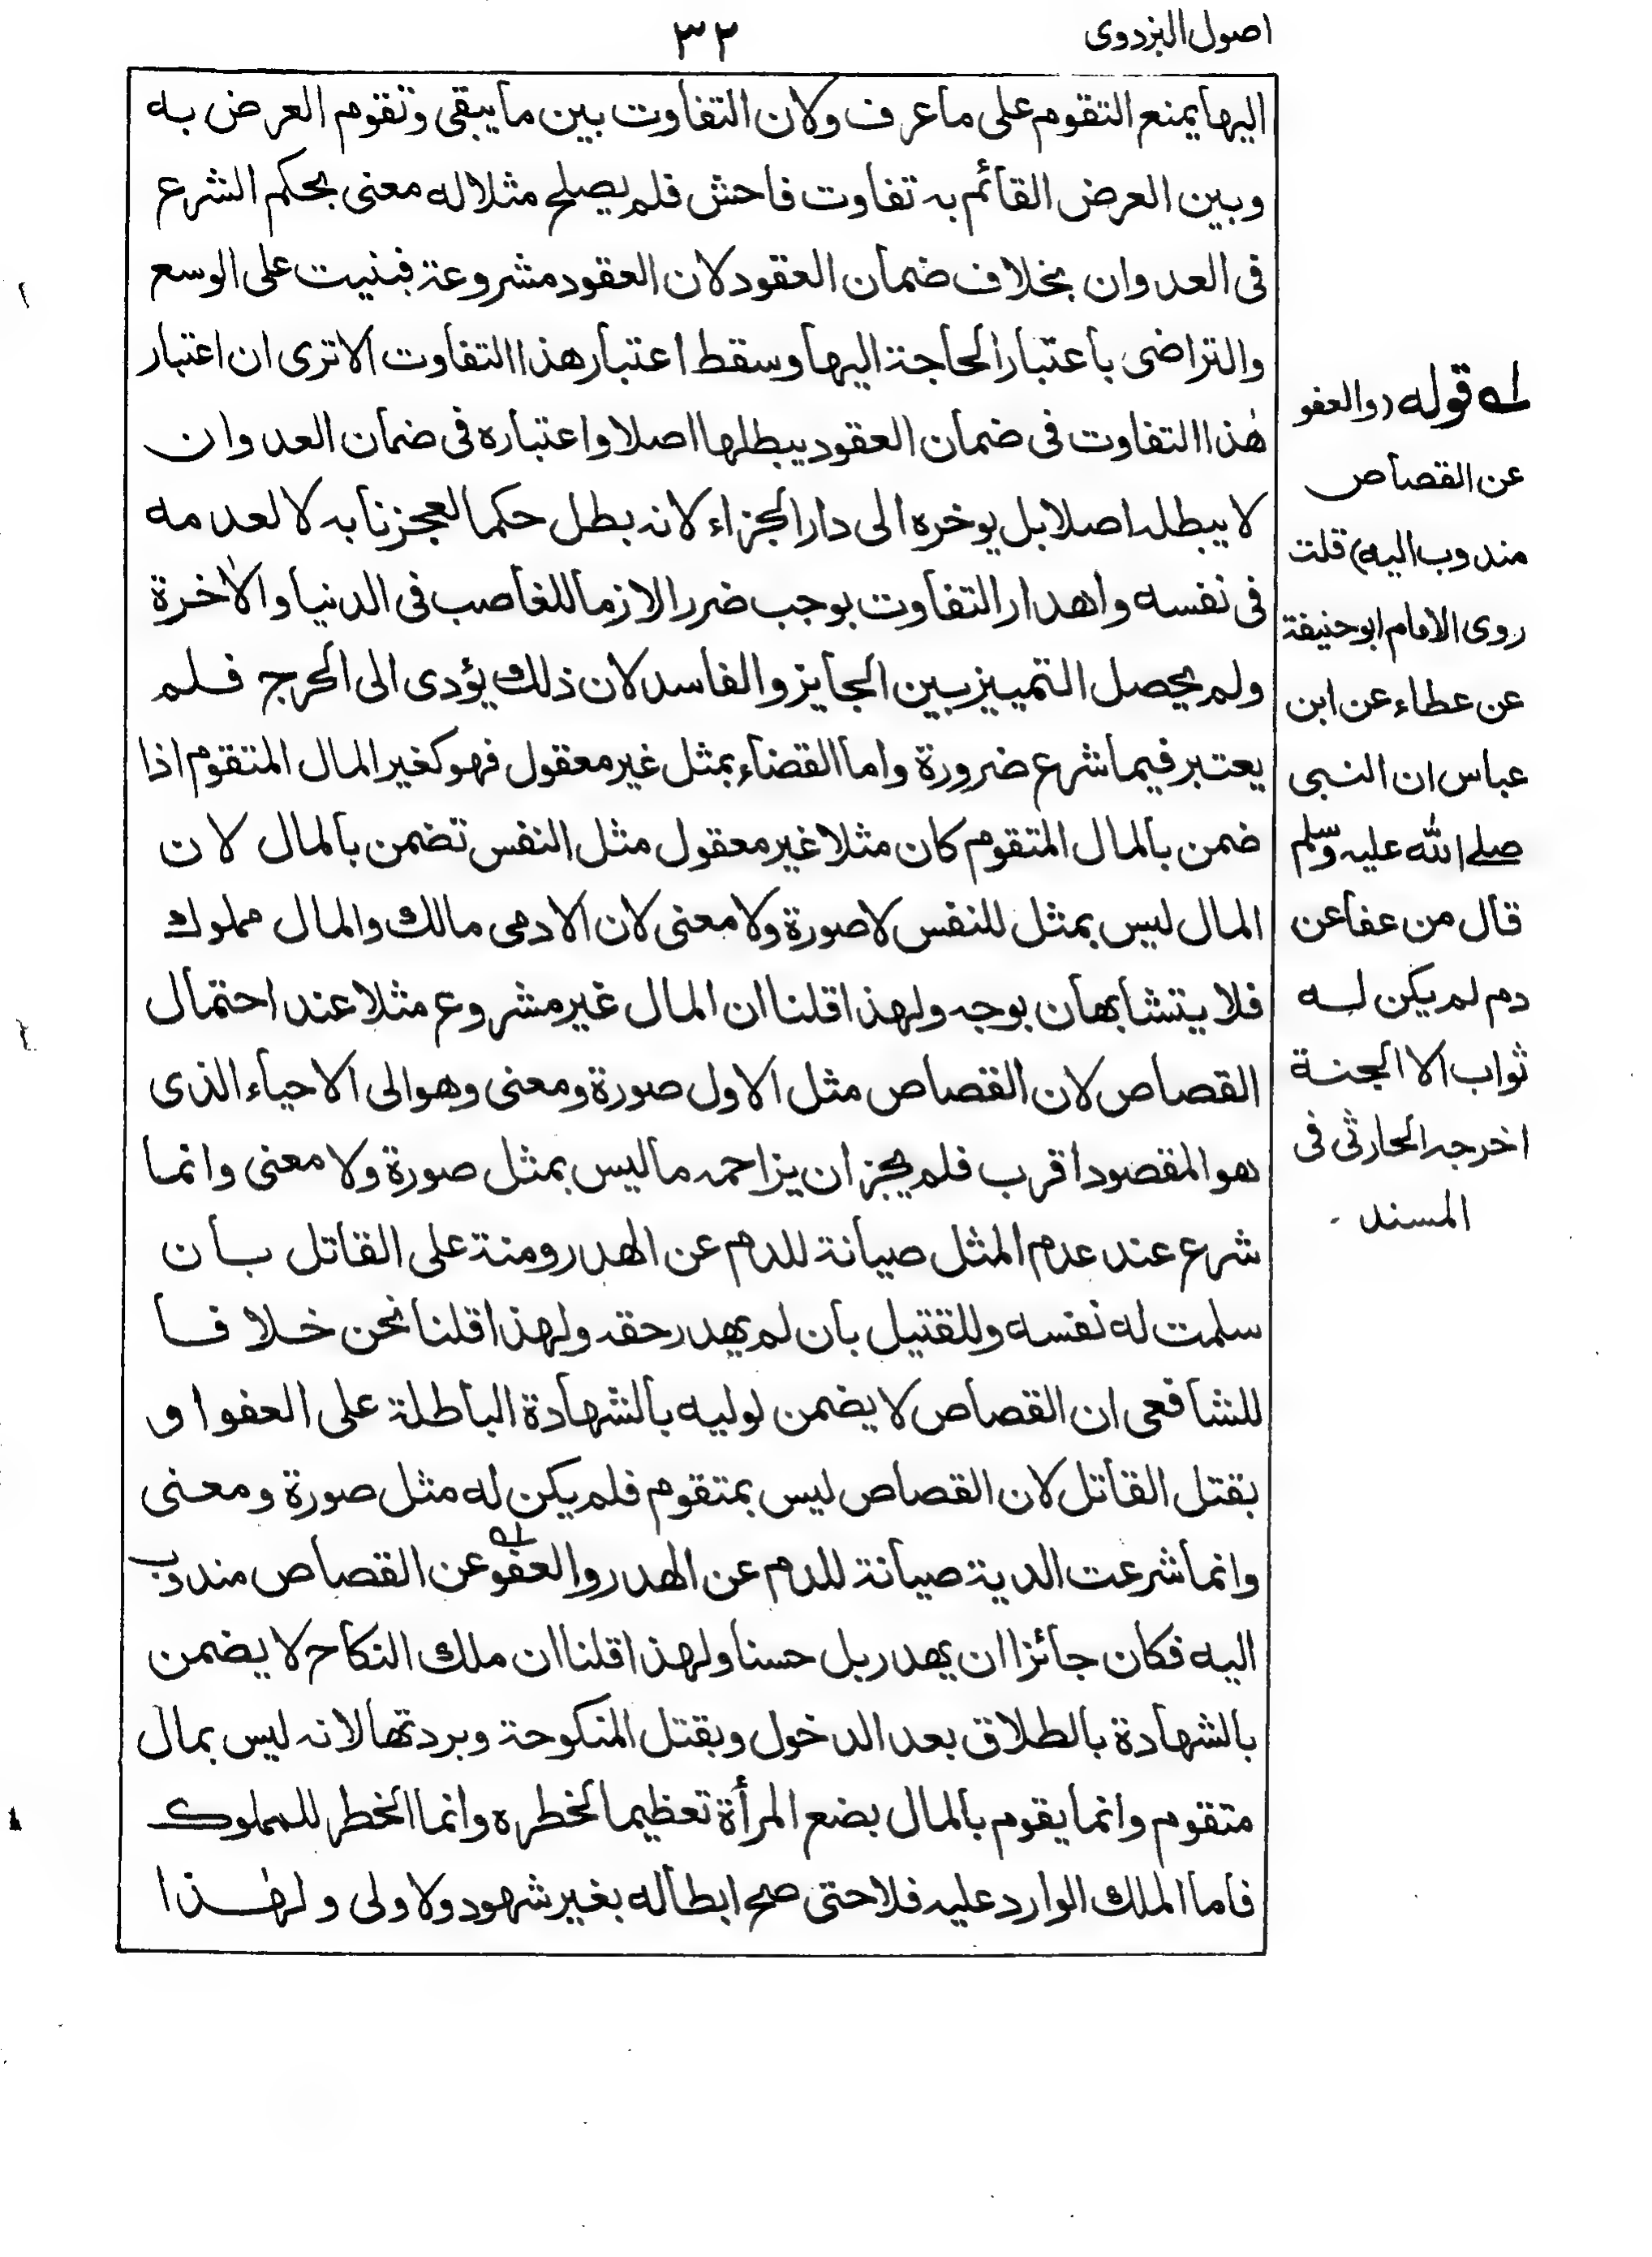 اصول البزدوى
٣٢
اليها يمنع التقوم على ما عرف ولان التفاوت بين ما يبقى وتقوم العرض به
وبين العرض القائم به تفاوت فاحش فلم يصلح مثلا له معنى بحكم الشرع
فى العدوان بخلاف ضمان العقود لان العقود مشروعة فبنيت على الوسع
والتراضى باعتبار الحاجة اليها وسقط اعتبار هذا التفاوت الا ترى ان اعتبار
هذا التفاوت فى ضمان العقود يبطلها اصلا واعتباره فى ضمان العدوان
لا يبطله اصلا بل يوخره الى دار الجزاء لانه بطل حكما لعجزنا به لا لعدمه
فى نفسه واهدار التفاوت يوجب ضررا لازما للغاصب فى الدنيا والاخرة
ولم يحصل التمييز بين الجايز والفاسد لان ذلك يؤدى الى الحرج فلم
يعتبر فيما شرع ضرورة واما القضاء بمثل غير معقول فهو كغير المال المتقوم اذا
ضمن بالمال المتقوم كان مثلا غير معقول مثل النفس تضمن بالمال لان
المال ليس بمثل للنفس لا صورة ولا معنى لان الادمى مالك والمال مملوك
فلا يتشابهان بوجه ولهذا قلنا ان المال غير مشروع مثلا عند احتمال
القصاص لان القصاص مثل الاول صورة ومعنى وهو الى الاحياء الذى
هو المقصود اقرب فلم يجز ان يزاحمه ما ليس بمثل صورة ولا معنى وانما
شرع عند عدم المثل صيانة للدم عن الهدر ومنة على القاتل بان
سلمت له نفسه وللقتيل بان لم يهدر حقه ولهذا قلنا نحن خلافا
للشافعى ان القصاص لا يضمن لوليه بالشهادة الباطلة على العفو او
بقتل القاتل لان القصاص ليس بمتقوم فلم يكن له مثل صورة ومعنى
وانما شرعت الدية صيانة للدم عن الهدر والعفو له عن القصاص مندوب
اليه فكان جائزا ان يهدر بل حسنا ولهذا قلنا ان ملك النكاح لا يضمن
بالشهادة بالطلاق بعد الدخول وبقتل المنكوحة وبردتها لانه ليس بمال
متقوم وانما يقوم بالمال بضع المرأة تعظيما لخطره وانما الخطر للمملوك
فاما الملك الوارد عليه فلا حتى صح ابطاله بغير شهود ولا ولى ولهذا
له قوله (والعفو
عن القصاص
مندوب اليه) قلت
روى الامام ابو حنيفة
عن عطاء عن ابن
عباس ان النبى
صلے الله عليه وسلم
قال من عفا عن
دم لم يكن له
ثواب الا الجنة
اخرجه الحارثى فى
المسند -